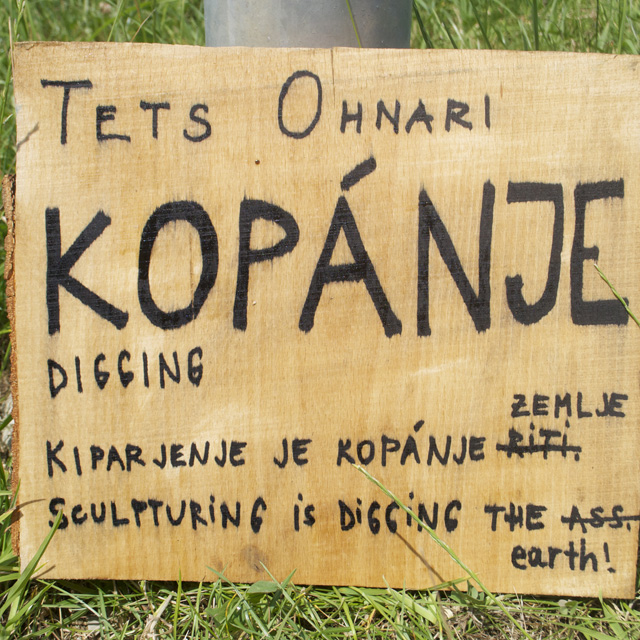 TETS OHNARI
KOPÁNJE
DIGGING
ZEMLJE
KIPARJENJE JE KOPÁNJE RITI.
SCULPTURING is DIGGING THE ASS.
earth!